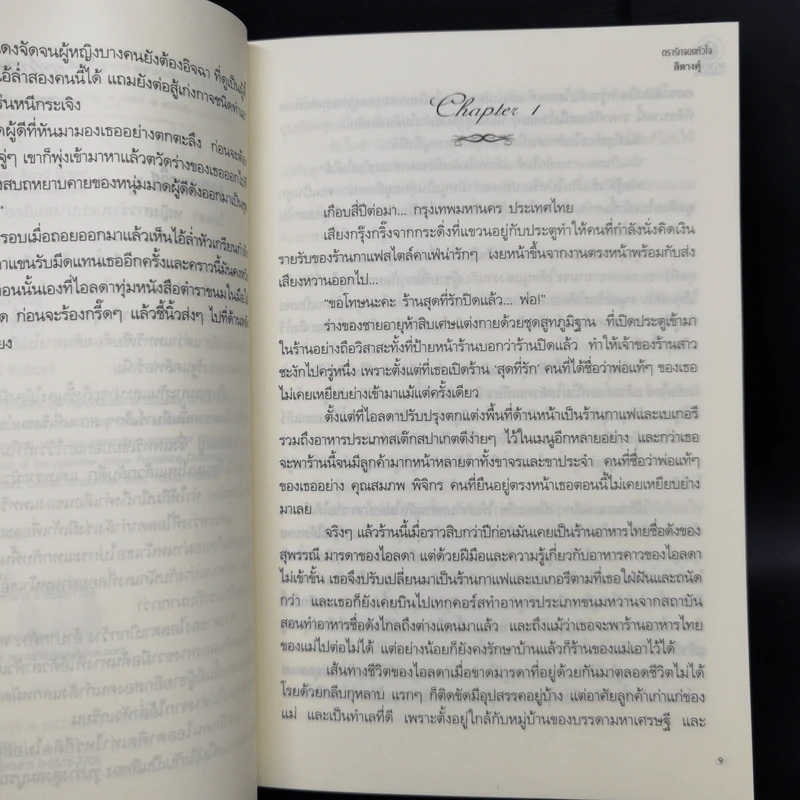 แดงจัดจนผู้หญิงบางคนยังต้องอิจฉา ที่ดูเป็นผู้ดี
ไอ้ล่ำสองคนนี้ได้ แถมยังต่อสู้เก่งกาจชนิดทำเอา
วิ่งหนีกระเจิง
ผู้ดีที่หันมามองเธออย่างตกตะลึง ก่อนจะต้อง
จู่ๆ เขาก็พุ่งเข้ามาหาแล้วตวัดร่างของเธอออกไป
สบถหยาบคายของหนุ่มมาดผู้ดีดังออกมาเป็นชุด
”
รอบเมื่อถอยออกมาแล้วเห็นไอ้ล่ำหัวเกรียน
แขนรับมีดแทนเธออีกครั้งและคราวนี้มัน
ตอนนั้นเองที่ไอลดาทุ่มหนังสือตำราขนมในมือ
ก่อนจะร้องกรี๊ดๆ แล้วชี้นิ้วส่งๆ ไปที่ด้านหลัง
ตรารักจองหัวใจ
สิตางศุ์
Chapter 1
เกือบสี่ปีต่อมา... กรุงเทพมหานคร ประเทศไทย
เสียงกรุ๊งกริ๊งจากกระดิ่งที่แขวนอยู่กับประตูทำให้คนที่กำลังนั่งคิดเงิน
รายรับของร้านกาแฟสไตล์คาเฟ่น่ารักๆ เงยหน้าขึ้นจากงานตรงหน้าพร้อมกับส่ง
เสียงหวานออกไป...
“ขอโทษนะคะ ร้านสุดที่รักปิดแล้ว... พ่อ!”
ร่างของชายอายุห้าสิบเศษแต่งกายด้วยชุดสูทภูมิฐาน ที่เปิดประตูเข้ามา
ในร้านอย่างถือวิสาสะทั้งที่ป้ายหน้าร้านบอกว่าร้านปิดแล้ว ทำให้เจ้าของร้านสาว
ชะงักไปครู่หนึ่ง เพราะตั้งแต่ที่เธอเปิดร้าน ‘สุดที่รัก’ คนที่ได้ชื่อว่าพ่อแท้ๆ ของเธอ
ไม่เคยเหยียบย่างเข้ามาแม้แต่ครั้งเดียว
ตั้งแต่ที่ไอลดาปรับปรุงตกแต่งพื้นที่ด้านหน้าเป็นร้านกาแฟและเบเกอรี
รวมถึงอาหารประเภทสเต๊กสปาเกตตีง่ายๆ ไว้ในเมนูอีกหลายอย่าง และกว่าเธอ
จะพาร้านนี้จนมีลูกค้ามากหน้าหลายตาทั้งขาจรและขาประจำ คนที่ชื่อว่าพ่อแท้ๆ
ของเธออย่าง คุณสมภพ พิจิกร คนที่ยืนอยู่ตรงหน้าเธอตอนนี้ไม่เคยเหยียบย่าง
มาเลย
จริงๆ แล้วร้านนี้เมื่อราวสิบกว่าปีก่อนมันเคยเป็นร้านอาหารไทยชื่อดังของ
สุพรรณี มารดาของไอลดา แต่ด้วยฝีมือและความรู้เกี่ยวกับอาหารคาวของไอลดา
ไม่เข้าขั้น เธอจึงปรับเปลี่ยนมาเป็นร้านกาแฟและเบเกอรีตามที่เธอใฝ่ฝันและถนัด
กว่า และเธอก็ยังเคยบินไปเทกคอร์สทำอาหารประเภทขนมหวานจากสถาบัน
สอนทำอาหารชื่อดังไกลถึงต่างแดนมาแล้ว และถึงแม้ว่าเธอจะพาร้านอาหารไทย
ของแม่ไปต่อไม่ได้ แต่อย่างน้อยก็ยังคงรักษาบ้านแล้วก็ร้านของแม่เอาไว้ได้
เส้นทางชีวิตของไอลดาเมื่อขาดมารดาที่อยู่ด้วยกันมาตลอดชีวิตไม่ได้
โรยด้วยกลีบกุหลาบ แรกๆ ก็ติดขัดมีอุปสรรคอยู่บ้าง แต่อาศัยลูกค้าเก่าแก่ของ
แม่ และเป็นทำเลที่ดี เพราะตั้งอยู่ใกล้กับหมู่บ้านของบรรดามหาเศรษฐี และ
9